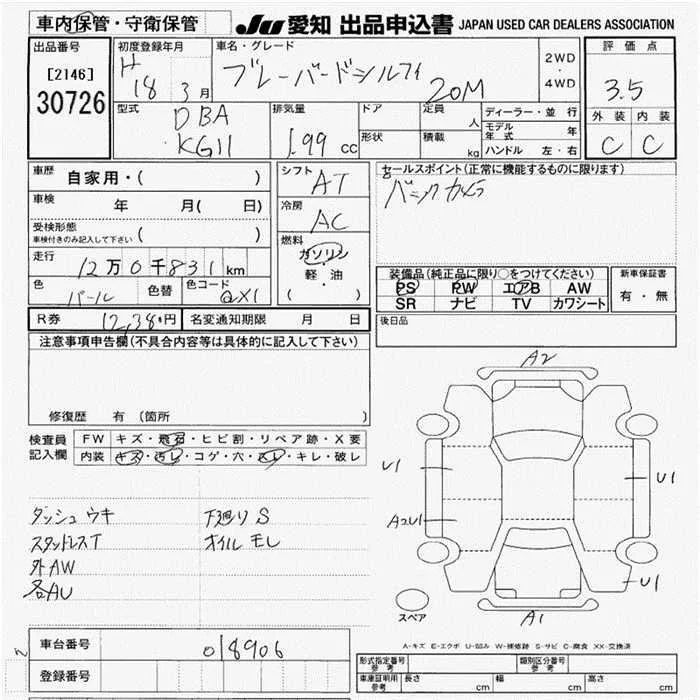 車内保管・守衛保管
JU 愛知 出品申込書 JAPAN USED CAR DEALERS ASSOCIATION
出品番号
[2146]
30726
初度登録年月
H 18 3月
車名・グレード
ブルーバードシルフィ 20M
2WD
・
4WD
評価点
3.5
外装 内装
C C
型式
DBA
KG11
排気量
1.99 cc
ドア
形状
定員
人
積載
kg
ディーラー・並行
モデル年式 年
ハンドル 左・右
車歴 自家用・( )
車検 年 月( 日)
受検形態
車検付きのみ記入して下さい ( )
走行 12万0千831km
色 パール 色替 色コード QX1
R券 12,380円 名変通知期限 月 日
シフト AT
冷房 AC
燃料
ガソリン
・
軽・油
( ・ )
セールスポイント(正常に機能するものに限ります)
バックカメラ
装備品(純正品に限り○をつけてください)
PS PW エアB AW
SR ナビ TV カワシート
新車保証書
有・無
後日品
注意事項申告欄(不具合内容等は具体的に記入して下さい)
修復歴 有(箇所 )
検査員記入欄
FW キズ・飛石・ヒビ割・リペア跡・X要
内装 キズ・汚レ・コゲ・穴・スレ・キレ・破レ
ダッシュウキ 下廻りS
スタッドレスT オイルモレ
外AW
各AU
A2
U1
U1
A2U1
U1
A1
スペア
A-キズ E-エクボ U-凹み W-補修跡 S-サビ C-腐食 XX-交換済
車台番号 018906
登録番号
形式指定番号 参考
類別区分番号 参考
車庫証明用 参考
長さ cm 幅 cm 高さ cm